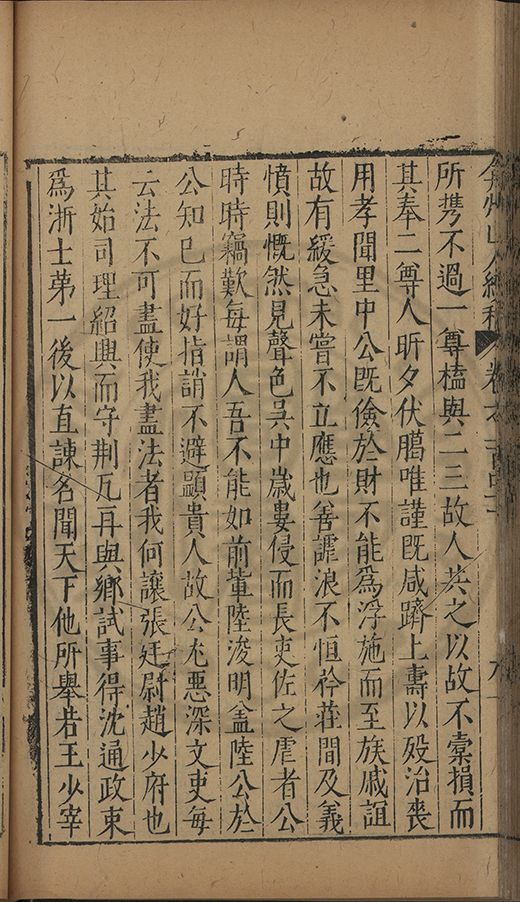 弇州山人續稿 卷之一百
所携不過一尊榼與二三故人共之以故不橐損而
其奉二尊人昕夕伏臈唯謹既咸躋上壽以歿治喪
用孝聞里中公既儉於財不能爲浮施而至族戚誼
故有緩急未嘗不立應也善謔浪不恒衿莊間及義
憤則慨然見聲色吳中嵗婁侵而長吏佐之虐者公
時時竊歎每謂人吾不能如前軰陸浚明盖陸公於
公知已而好指誚不避顕貴人故公尤惡深文吏每
云法不可盡使我盡法者我何讓張廷尉趙少府也
其始司理紹興而守荆瓦再與鄉試事得沈通政束
爲浙士苐一後以直諫名聞天下他所舉若王少宰